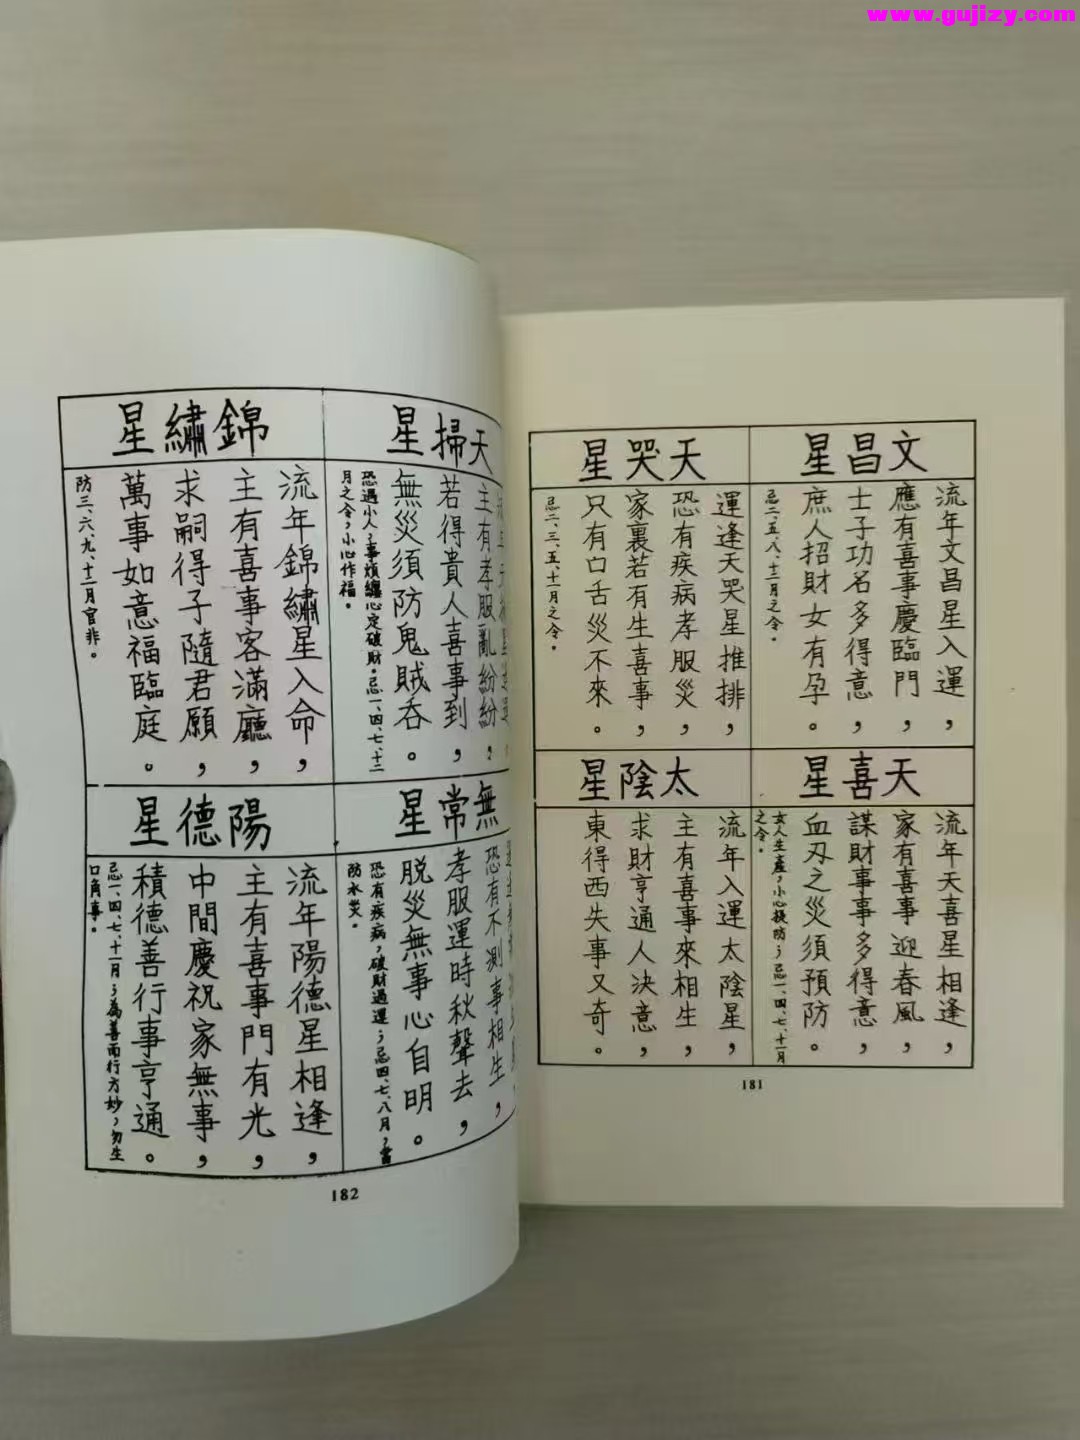 www.gujizy.com
文昌星
流年文昌星入運，
應有喜事慶臨門，
士子功名多得意，
庶人招財女有孕。
忌二、五、八、十二月之令。
天哭星
運逢天哭星推排，
恐有疾病孝服災，
家裏若有生喜事，
只有口舌災不來。
忌二、三、五、十一月之令。
天喜星
流年天喜星相逢，
家有喜事迎春風，
謀財事事多得意，
血刃之災須預防。
女人生產，小心提防；忌一、四、七、十一月
之令。
太陰星
流年入運太陰星，
主有喜事來相生，
求財亨通人決意，
東得西失事又奇。
181
天掃星
主有孝服亂紛紛，
若得貴人喜事到，
無災須防鬼賊吞。
恐遇小人；事煩纏心定破財。忌一、四、七、十二
月之令，小心作福。
錦繡星
流年錦繡星入命，
主有喜事客滿廳，
求嗣得子隨君願，
萬事如意福臨庭。
防三、六、九、十二月官非。
無常星
恐有不測事相生，
孝服運時秋聲去，
脱災無事心自明。
恐有疾病，破財過運；忌四、七、八月，當
防水災。
陽德星
流年陽德星相逢，
主有喜事門有光，
中間慶祝家無事，
積德善行事亨通。
忌一、四、七、十一月；為善而行方妙，勿生
口角事。
182